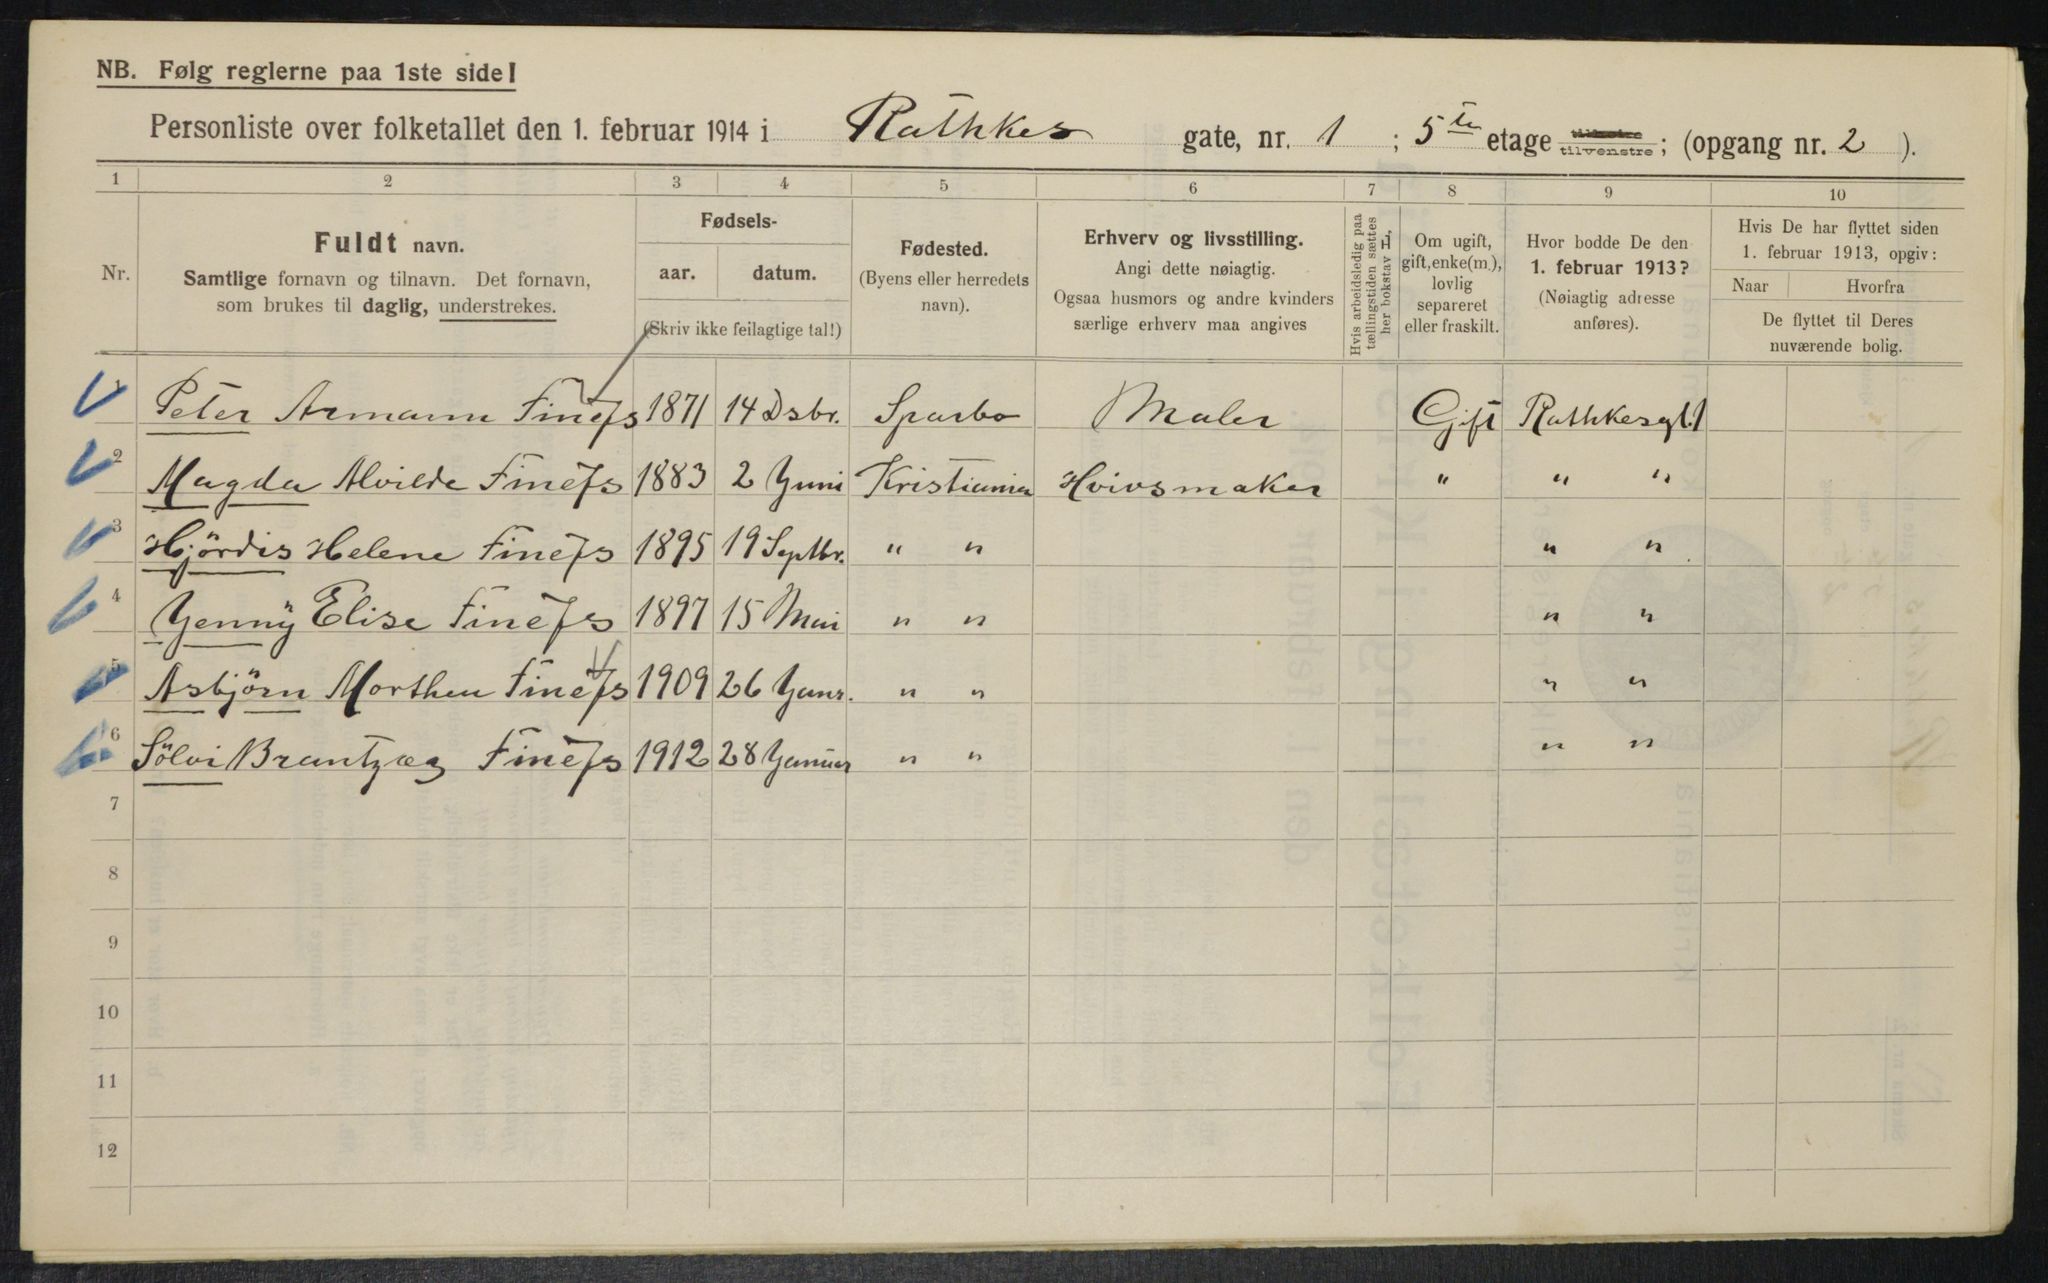 NB. Følg reglerne paa 1ste side!
Personliste over folketallet den 1. februar 1914 i Rathkes gate, nr. 1 ; 5te etage tilvenstre; (opgang nr. 2 ).
1 2 3 4 5 6 7 8 9 10
Nr.
Fuldt navn.
Samtlige fornavn og tilnavn. Det fornavn,
som brukes til daglig, understrekes.
Fødsels-
aar. datum.
(Skriv ikke feilagtige tal!)
Fødested.
(Byens eller herredets
navn).
Erhverv og livsstilling.
Angi dette nøiagtig.
Ogsaa husmors og andre kvinders
særlige erhverv maa angives
Hvis arbeidsledig paa
tællingstiden sættes
her bokstav H,
Om ugift,
gift, enke(m.),
lovlig
separeret
eller fraskilt.
Hvor bodde De den
1. februar 1913?
(Nøiagtig adresse
anføres).
Hvis De har flyttet siden
1. februar 1913, opgiv:
Naar Hvorfra
De flyttet til Deres
nuværende bolig.
1 Peter Armann Finefs 1871 14 Dsbr. Sparbo Maler Gift Rathkesgt. 1
2 Magda Alvilde Finefs 1883 2 Yuni Kristiania Hvivsmaker " " "
3 Hjördis Helene Finefs 1895 19 Septbr. " " " "
4 Yenny Elise Finefs 1897 15 Mai " " " "
5 Asbjörn Morthen Finefs 1909 26 Yanr. " " " "
6 Sölvi Brantzæg Finefs 1912 28 Yanuar " " " "
7
8
9
10
11
12